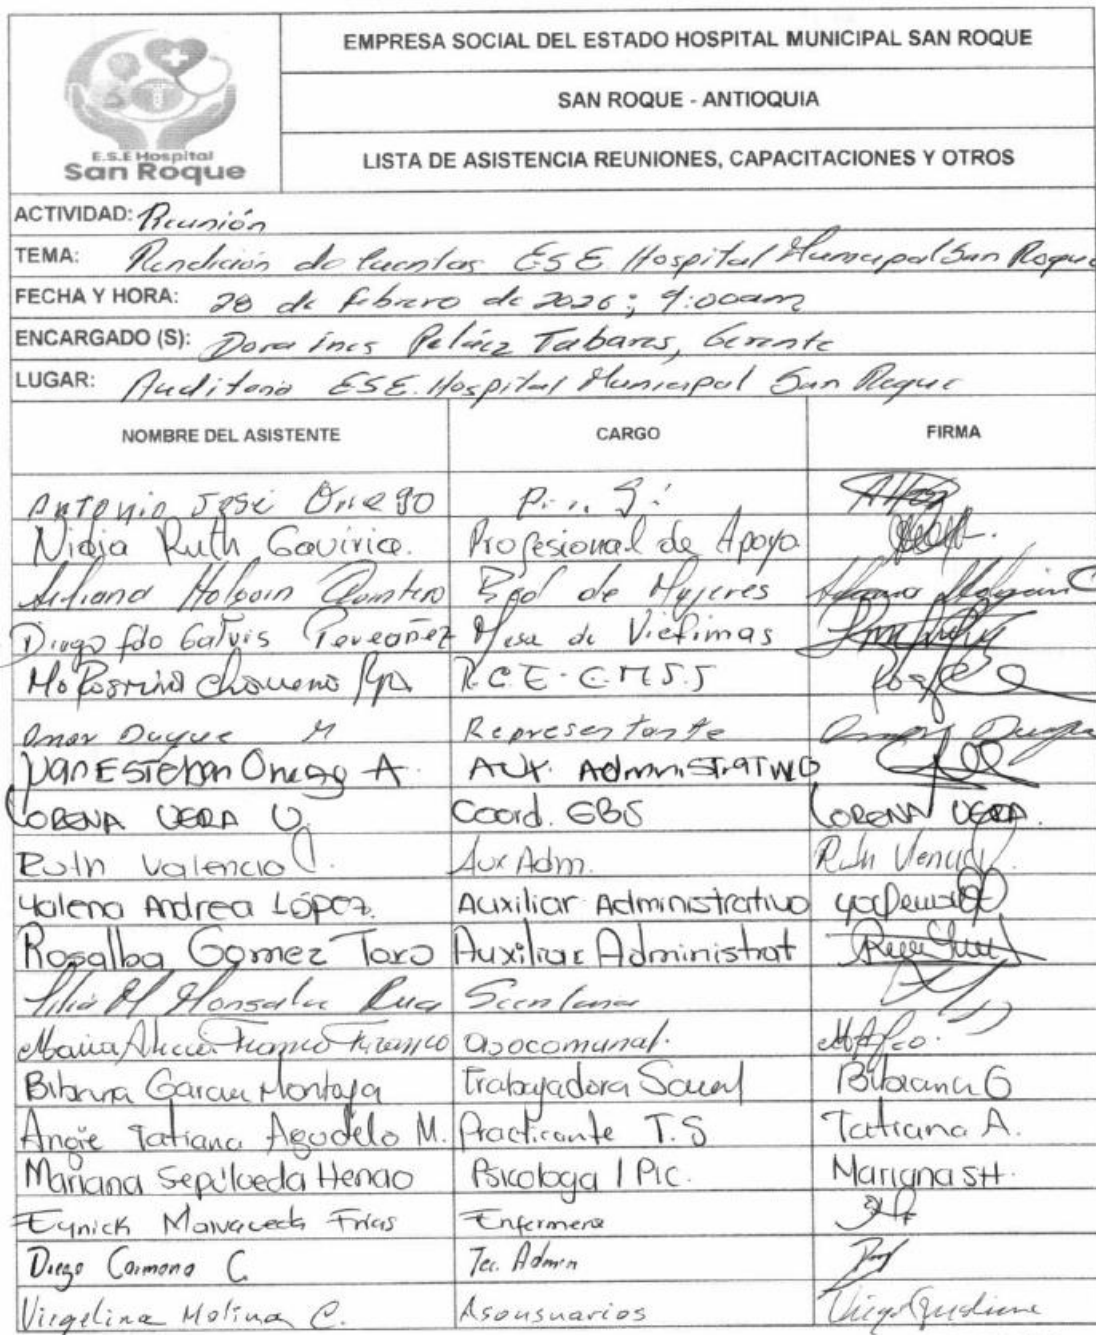 E.S.E Hospital
San Roque
EMPRESA SOCIAL DEL ESTADO HOSPITAL MUNICIPAL SAN ROQUE
SAN ROQUE - ANTIOQUIA
LISTA DE ASISTENCIA REUNIONES, CAPACITACIONES Y OTROS
ACTIVIDAD: Reunión
TEMA: Rendición de cuentas ESE Hospital Municipal San Roque
FECHA Y HORA: 28 de febrero de 2026; 9:00am
ENCARGADO (S): Dora ines Peláez Tabares, Gerente
LUGAR: Auditorio ESE. Hospital Municipal San Roque
NOMBRE DEL ASISTENTE CARGO FIRMA
Antonio José Orrego
Nidia Ruth Gaviria. Profesional de Apoyo
Holguin Quintero Red de Mujeres
Diego fdo Galvis Mesa de Victimas
Omar Duque M Representante Omar Duque
Juan Esteban Orrego A. Aux. Administrativo
LORENA VERA U. Coord. GBS LORENA VERA.
Ruth Valencia Aux Adm. Ruth
Yalena Andrea López. Auxiliar Administrativo
Rosalba Gomez Toro Auxiliar Administrat
Secretaria
Maria Franco Franco asocomunal.
Bibiana Garcia Montoya Trabajadora Social Bibiana G
Angie Tatiana Agudelo M. Practicante T.S Tatiana A.
Mariana Sepúlveda Henao Psicologa / Pic. Mariana SH.
Frias Enfermera
Diego Carmona C. Tec. Admin
Virgelina Molina C. Asousuarios